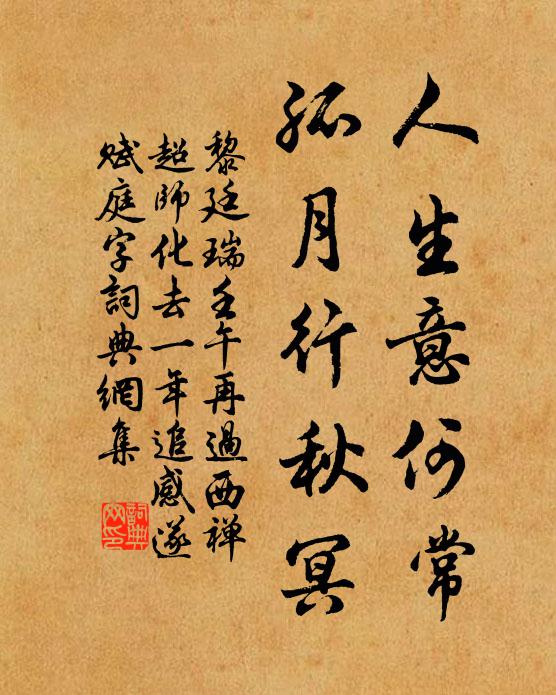 人生意何常
孤月行秋冥
黎廷瑞壬午再過西禅
超師化去一年追感遂
赋庭字詞典網集
詞典网印